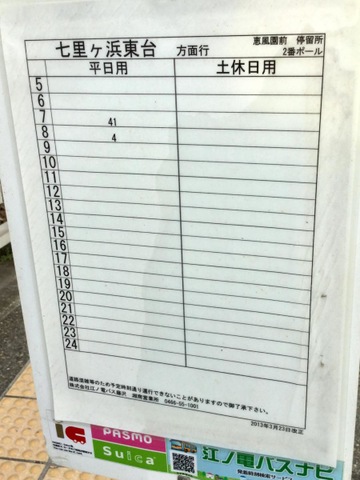 七里ヶ浜東台 方面行
恵風園前 停留所
2番ポール
平日用 土休日用
5
6
7 41
8 4
9
10
11
12
13
14
15
16
17
18
19
20
21
22
23
24
道路混雑等のため予定時刻通り運行できないことがありますので御了承下さい。
株式会社江ノ電バス藤沢 湘南営業所 0466-55-1001
2013年3月23日改正
IC
PASMO
Suica
江ノ電バスナビ